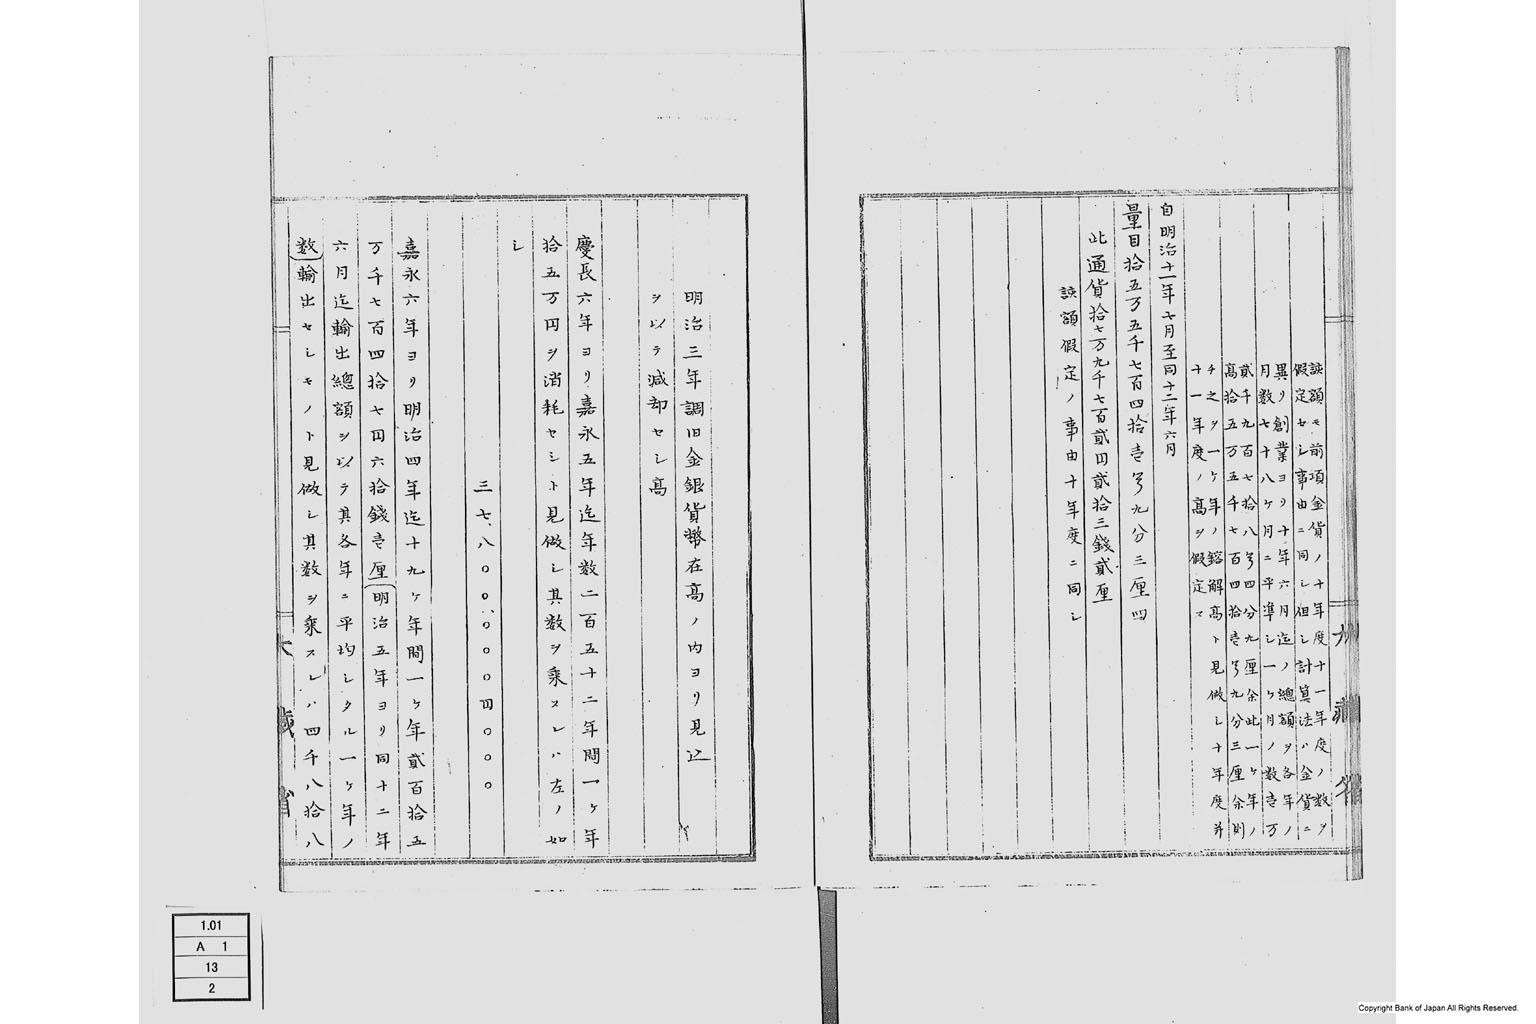 該額モ前項金貨ノ十年度十一年度ノ数ヲ
假定セシ事由ニ同シ但シ計算法ハ金貨ニ
異リ創業ヨリ十年六月迄ノ總額ヲ各年ノ
月数七十八ヶ月ニ平準シ一ヶ月ノ数壱万
貳千九百七拾八匁四分九厘余此一ヶ年ノ
高拾五万五千七百四拾壱匁九分三厘余則
チ之ヲ一ヶ年ノ鎔解高ト見做シ十年度并
十一年度ノ高ヲ假定ス
自明治十一年七月至同十二年六月
量目拾五万五千七百四拾壱匁九分三厘四
此通貨拾七万九千七百貳円貳拾三錢貳厘
該額假定ノ事由十年度ニ同シ
大藏省
明治三年調旧金銀貨幣在高ノ内ヨリ見込
ヲ以テ減却セシ高
慶長六年ヨリ嘉永五年迄年数二百五十二年間一ヶ年
拾五万円ヲ消耗セシト見做シ其数ヲ乘スレハ左ノ如
シ
三七、八〇〇、〇〇〇円〇〇〇
嘉永六年ヨリ明治四年迄十九ヶ年間一ヶ年貳百拾五
万千七百四拾七円六拾錢壱厘(明治五年ヨリ同十二年
六月迄輸出總額ヲ以テ其各年ニ平均シタル一ヶ年ノ
数)輸出セシモノト見做シ其数ヲ乘スレハ四千八拾八
大藏省
1.01
A 1
13
2
Copyright Bank of Japan All Rights Reserved.